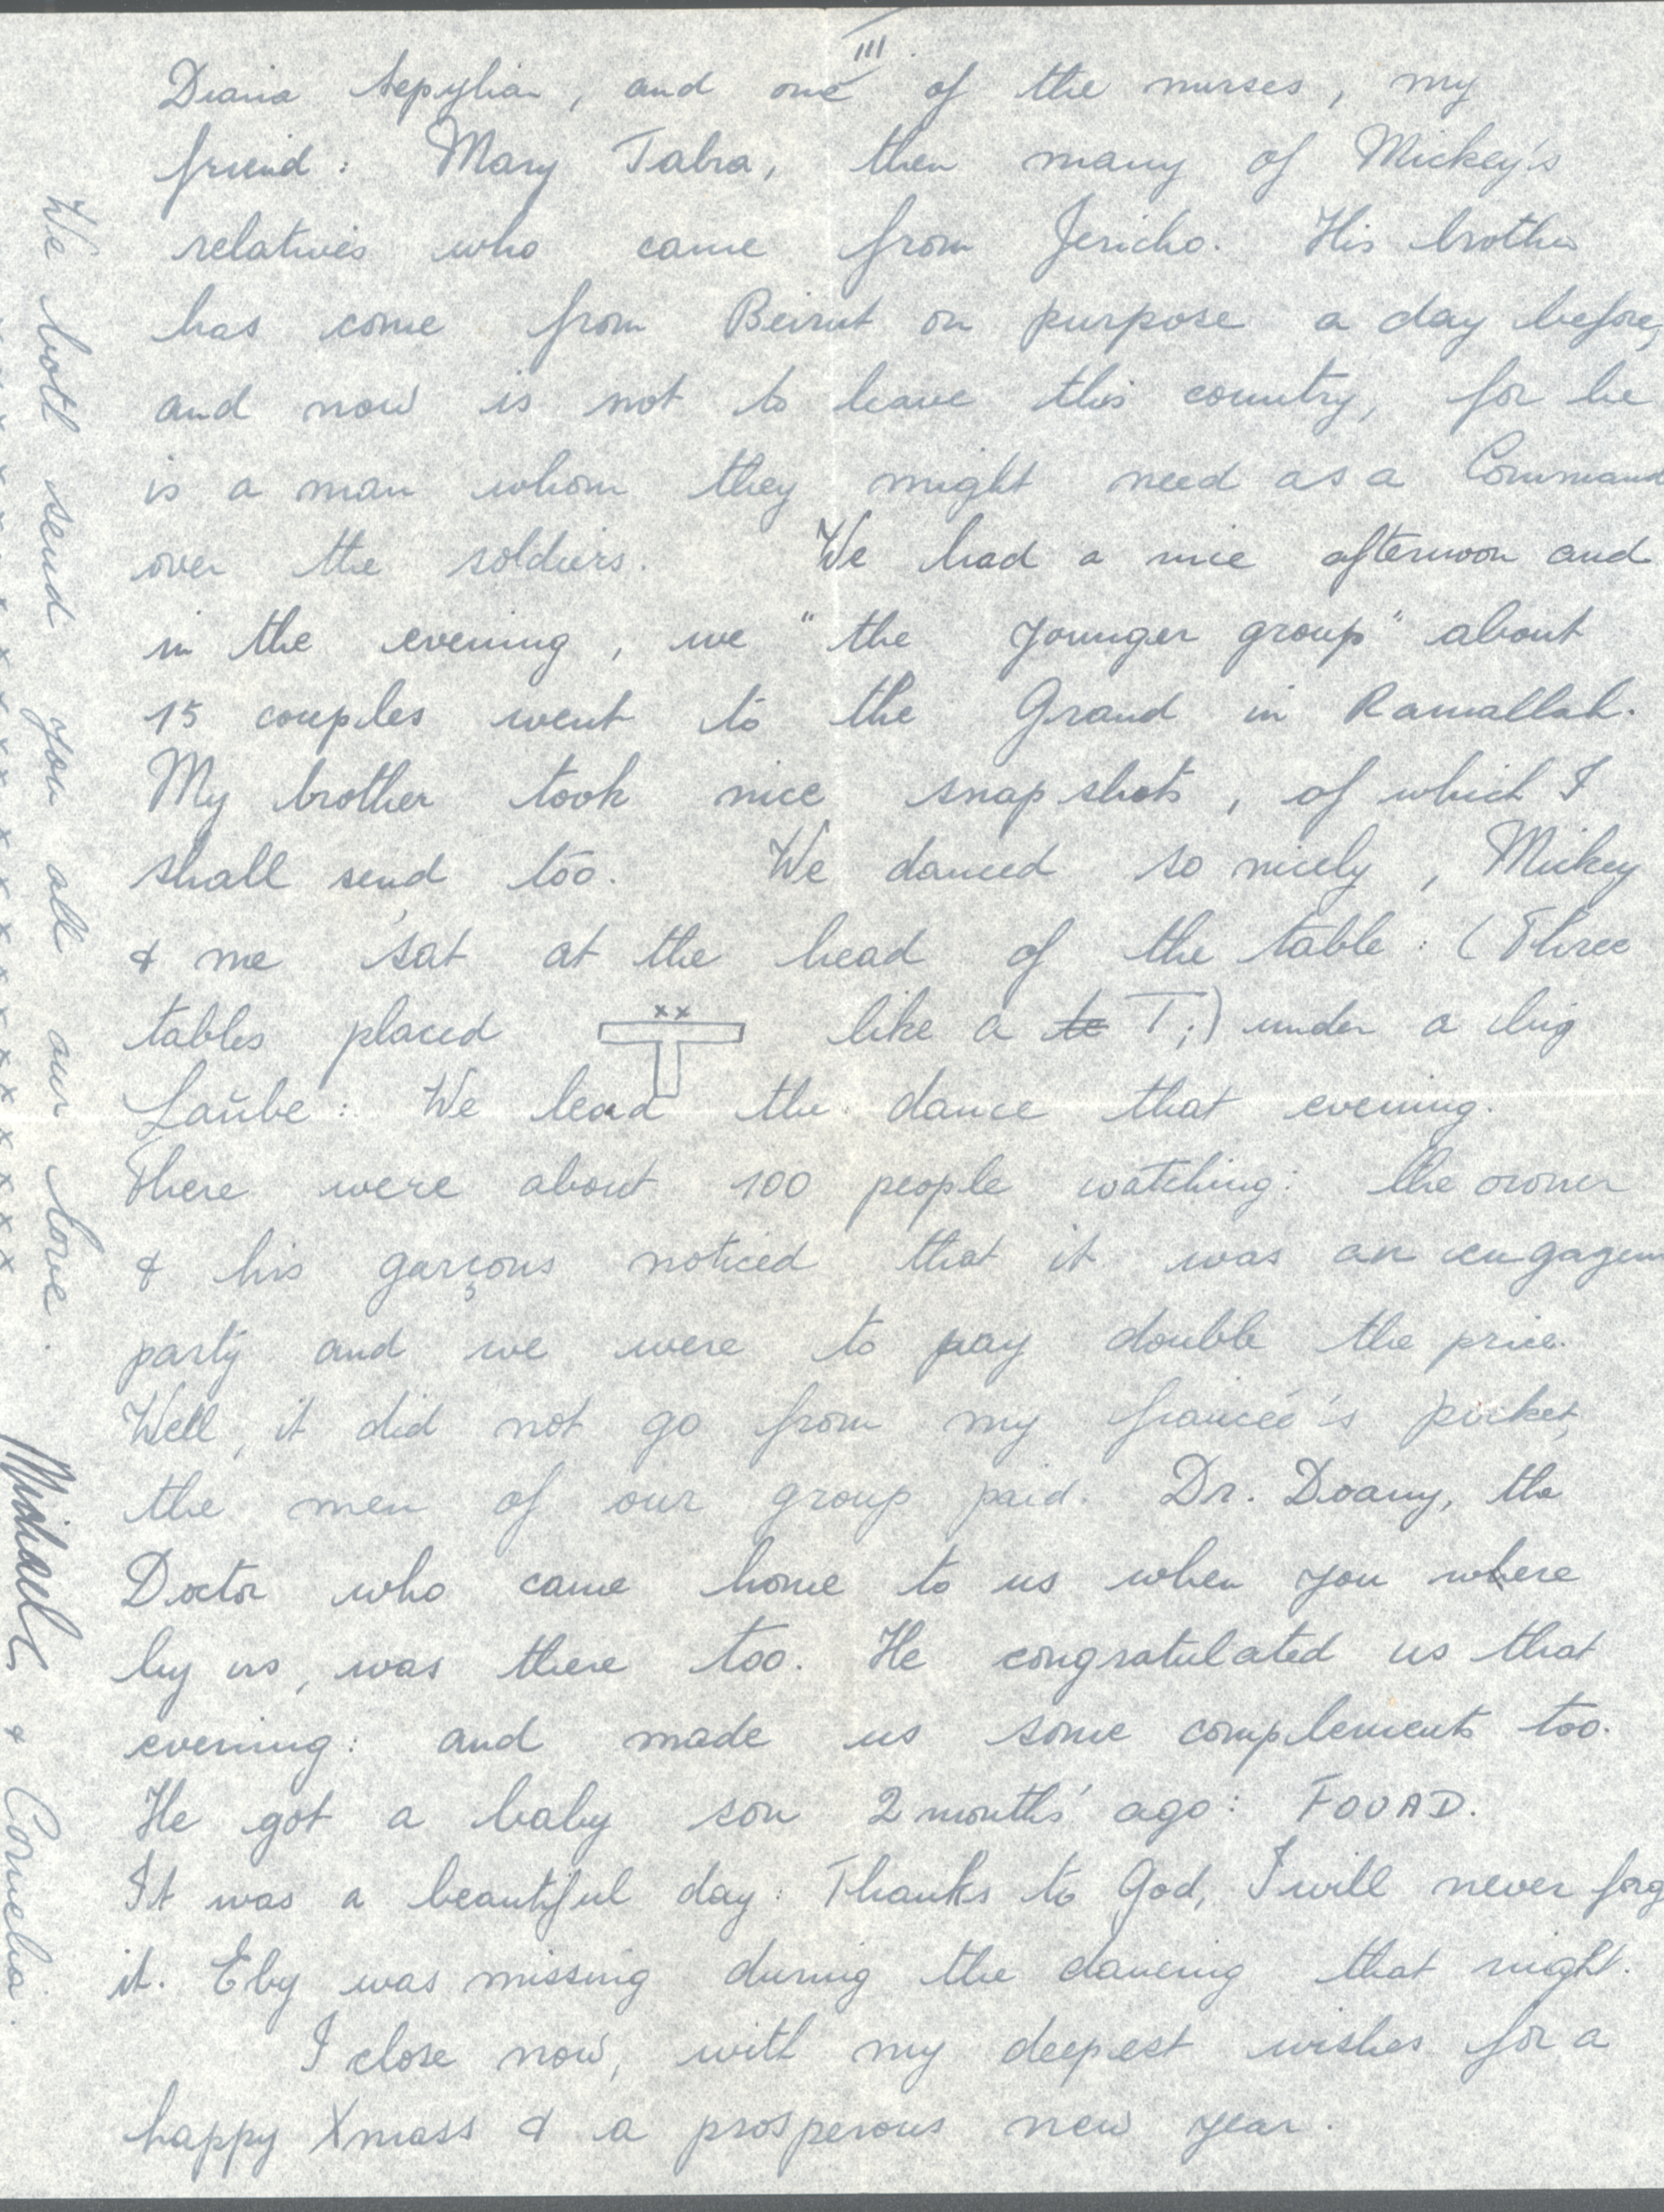 III
Diana Sepylian, and one of the nurses, my
friend: Mary Tabra, then many of Mickey's
relatives who came from Jericho. His brother
has come from Beirut on purpose a day before,
and now is not to leave this country, for he
is a man whom they might need as a Command
over the soldiers. We had a nice afternoon and
in the evening, we "the younger group" about
15 couples went to the Grand in Ramallah.
My brother took nice snap shots, of which I
shall send too. We danced so nicely, Mickey
& me sat at the head of the table: (Three
tables placed xx like a te T;) under a big
Laube: We lead the dance that evening.
There were about 100 people watching: the owner
& his garçons noticed that it was an engagem
party and we were to pay double the price.
Well, it did not go from my fiancée's pocket,
the men of our group paid. Dr. Doany, the
Doctor who came home to us when you where
by us, was there too. He congratulated us that
evening: and made us some complements too.
He got a baby son 2 months' ago: FOUAD.
It was a beautiful day: Thanks to God, I will never forg
it. Eby was missing during the dancing that night.
I close now, with my deepest wishes for a
happy Xmass & a prosperous new year.
We both send you all our love.
Michael & Cornelia.